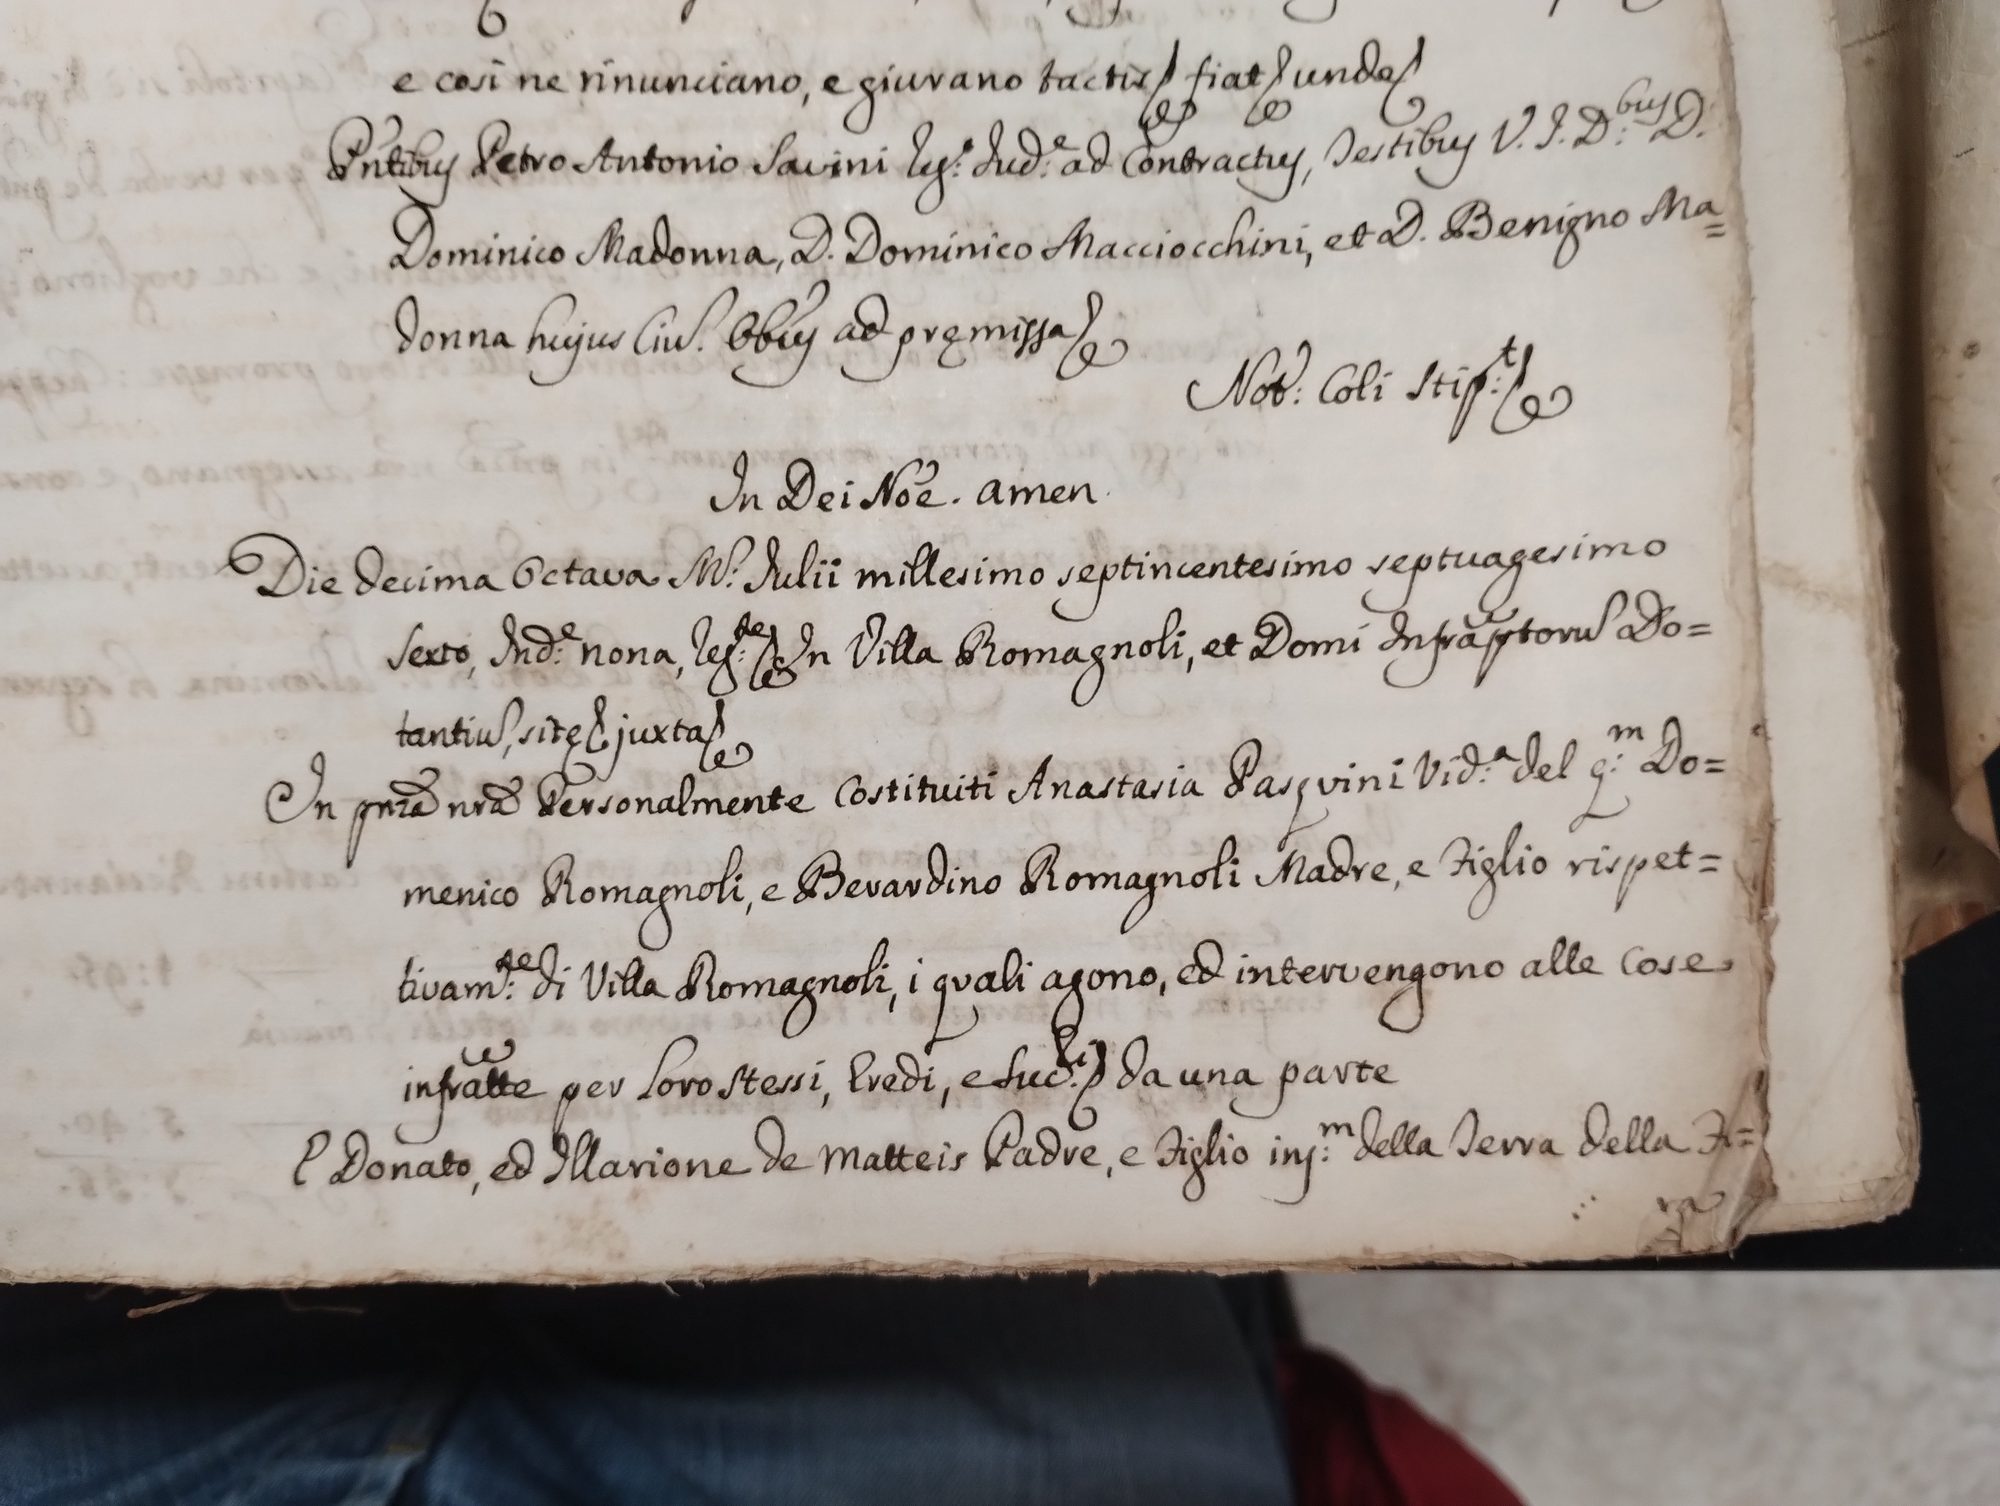 e così ne rinunciano, e giurano tactis fiat unde
Pntibus Petro Antonio Savini Reg.o Jud.e ad Contractus, Testibus V. J. D.bus D.
Dominico Madonna, D. Dominico Macciocchini, et D. Benigno Ma=
donna hujus Civ. Obus ad pręmissa
Not: Coli Stip:t
In Dei Noe. amen.
Die decima Octava M: Julii millesimo septincentesimo septuagesimo
sexto, Ind:e nona, Reg:te In Villa Romagnoli, et Domi Infrãptoru Do=
tantiu, sitę juxta
In pnza nra Personalmente Costituiti Anastasia Pasqvini Vid:a del q:m Do=
menico Romagnoli, e Berardino Romagnoli Madre, e Figlio rispet=
tivam:te di Villa Romagnoli, i qvali agono, ed intervengono alle Cose
infratte per loro stessi, Eredi, e Suc:ri da una parte
E Donato, ed Illarione de Matteis Padre, e Figlio ins:m della Terra della Fi=
ra